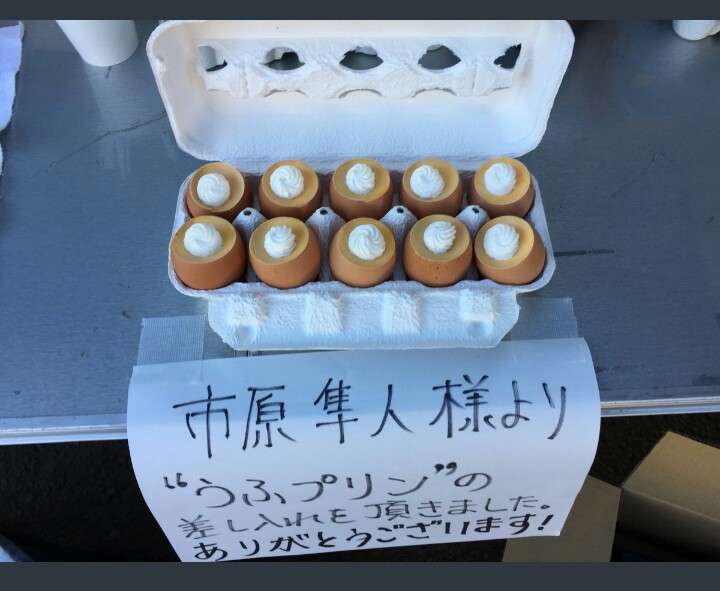 市原隼人様より
“うふプリン”の
差し入れを頂きました。
ありがとうございます!